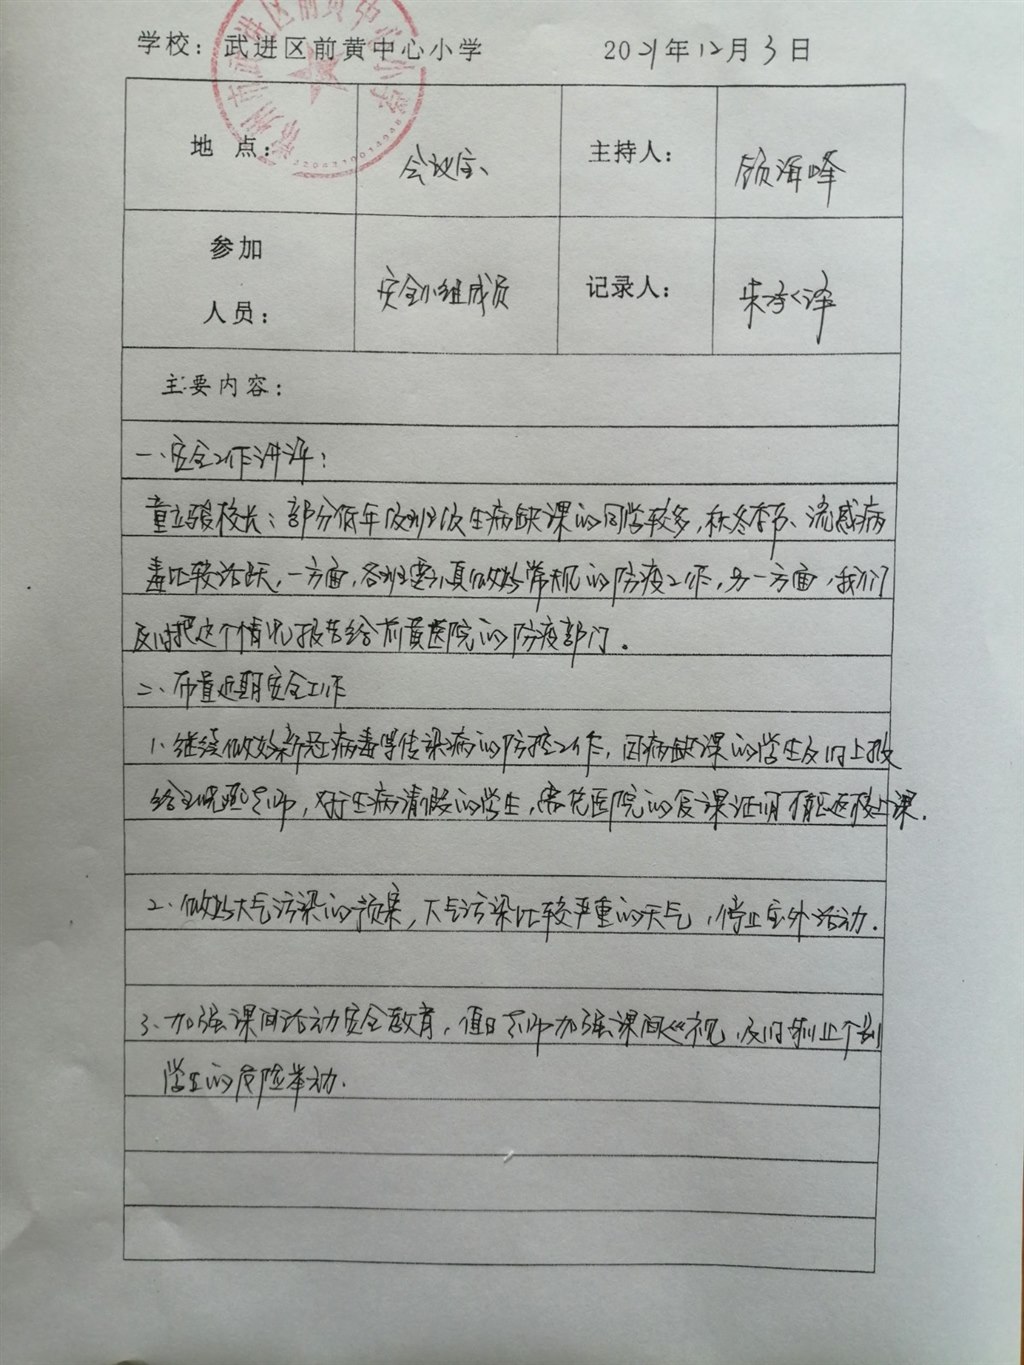 学校：武进区前黄中心小学 2021年12月3日
常州市武进区前黄中心小学
地 点： 会议室 主持人： 顾海峰
参加
人员： 安全小组成员 记录人： 朱泽
主要内容：
一、安全工作讲评：
童立骏校长：部分低年级班级生病缺课的同学较多，秋冬季节、流感病
毒比较活跃，一方面，各班要认真做好常规的防疫工作，另一方面，我们
及时把这个情况报告给前黄医院的防疫部门。
二、布置近期安全工作
1、继续做好新冠病毒等传染病的防控工作，因病缺课的学生及时上报
给老师，对于生病请假的学生，凭医院的复课证明才能返校上课.
2、做好大气污染的预案，大气污染比较严重的天气，停止室外活动.
3、加强课间活动安全教育，值日老师加强课间巡视，及时制止个别
学生的危险举动.